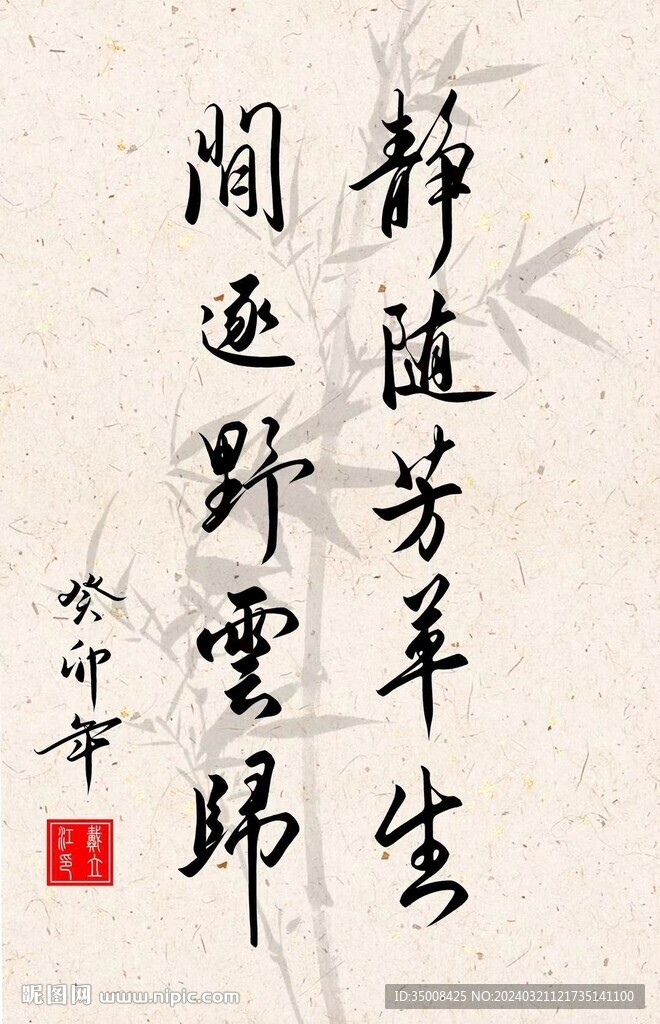 靜随芳草生
閒逐野雲歸
癸卯年
戴立
江印
昵图网 www.nipic.com
ID:35008425 NO:20240321121735141100